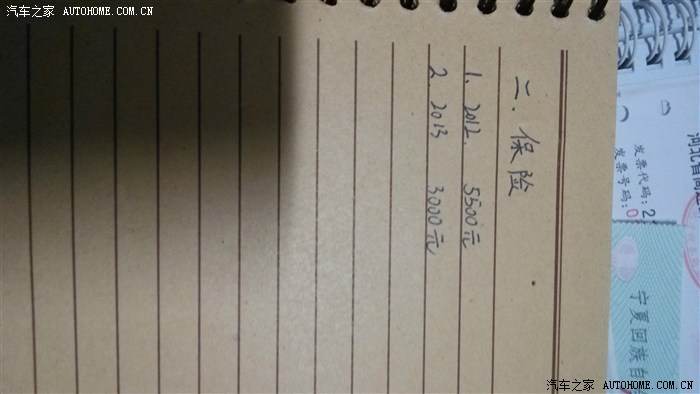 汽车之家 AUTOHOME.COM.CN
二. 保险
1. 2012. 5500元
2. 2013 3000元
河北省高速
发票代码: 2
发票号码: 0
宁夏回族自
汽车之家 AUTOHOME.COM.CN